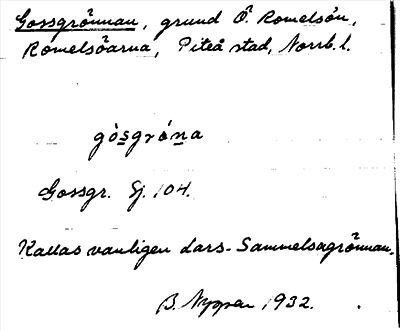 Gossgrönnan, grund Ö. Romelsön,
Romelsöarna, Piteå stad, Norrb. l.
gòsgróna
Gossgr. Sj. 104.
Kallas vanligen Lars-Sammelsagrönnan.
B. Nyman 1932.